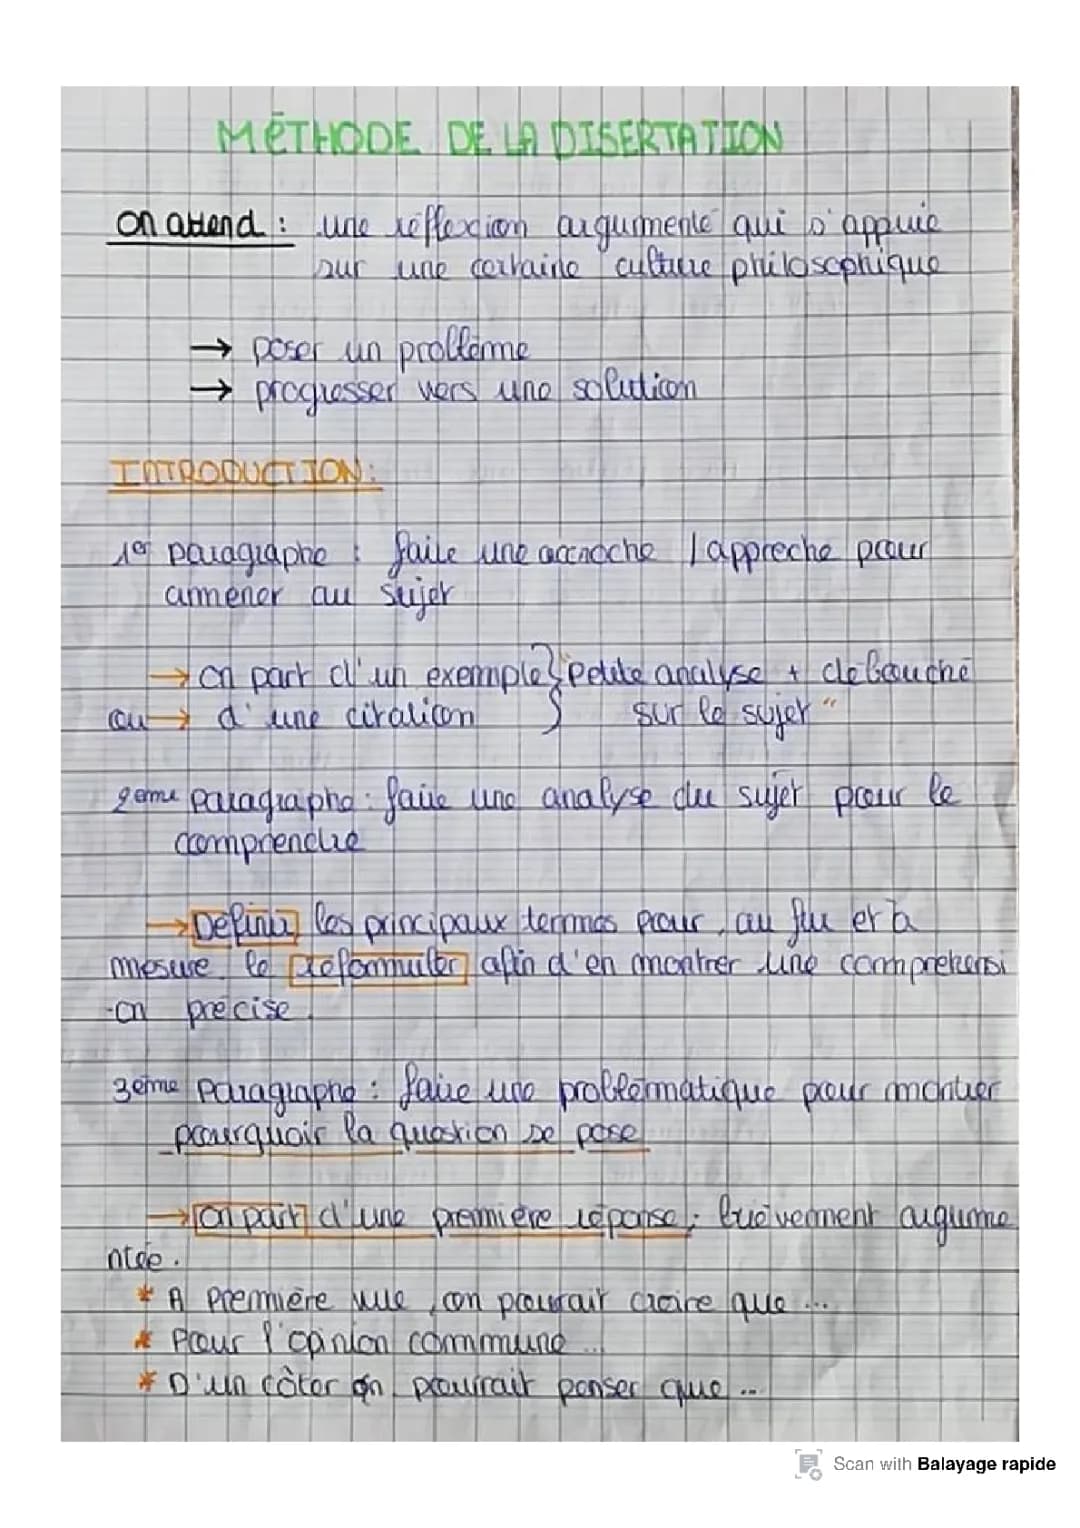 MÉTHODE DE LA DISERTATION
On attend : une réflexion argumenté qui s'appuie
sur une certaine culture philosophique
→ poser un problème
→ progresser vers une solution
INTRODUCTION:
1er paragraphe : faire une accroche / approche pour
amener au sujet
→ on part d'un exemple } "Petite analyse + débouché
ou → d'une citation } sur le sujet"
2ème paragraphe : faire une analyse du sujet pour le
comprendre
→ Définir les principaux termes pour, au fur et à
mesure, le reformuler afin d'en montrer une comprehensi
-on précise.
3ème paragraphe : faire une problématique pour montrer
pourquoi la question se pose
→ On part d'une première réponse, brièvement argume
ntée.
* A première vue, on pourrait croire que ...
* Pour l'opinion commune ...
* D'un côter on pourrait penser que ...
Scan with Balayage rapide